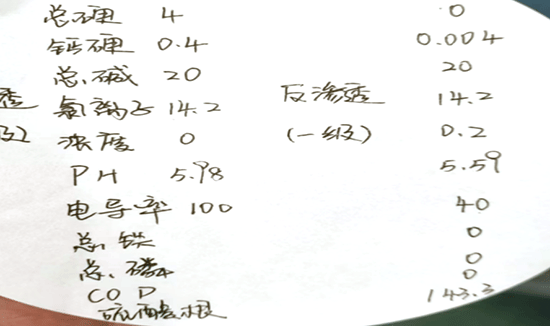 总硬 4 0
钙硬 0.4 0.004
总碱 20 20
透 氯离子 14.2 反渗透 14.2
级) 浓度 0 (一级) 0.2
PH 5.98 5.59
电导率 100 40
总铁 0
总磷 0
COD 0
硫酸根 143.3